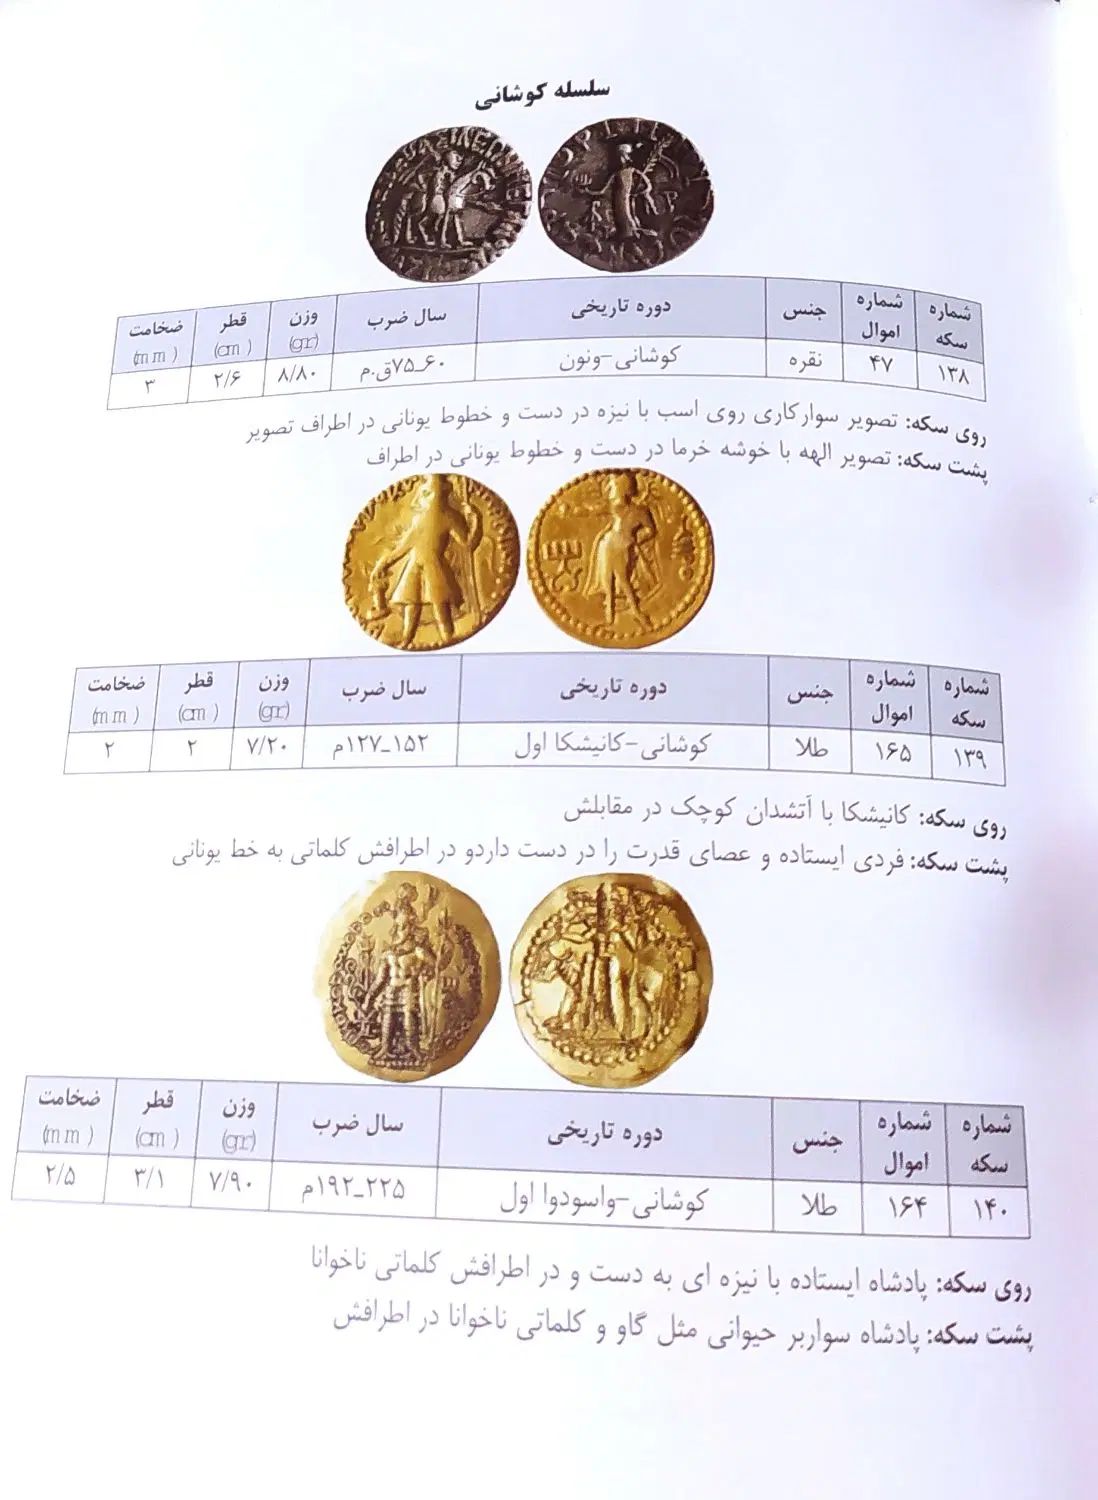 سلسله کوشانی
شماره سکه | شماره اموال | جنس | دوره تاریخی | سال ضرب | وزن (gr) | قطر (cm) | ضخامت (mm)
۱۳۸ | ۴۷ | نقره | کوشانی-ونون | ۶۰_۷۵ق.م | ۸/۸۰ | ۲/۶ | ۳
روی سکه: تصویر سوارکاری روی اسب با نیزه در دست و خطوط یونانی در اطراف تصویر
پشت سکه: تصویر الهه با خوشه خرما در دست و خطوط یونانی در اطراف
شماره سکه | شماره اموال | جنس | دوره تاریخی | سال ضرب | وزن (gr) | قطر (cm) | ضخامت (mm)
۱۳۹ | ۱۶۵ | طلا | کوشانی-کانیشکا اول | ۱۵۲_۱۲۷م | ۷/۲۰ | ۲ | ۲
روی سکه: کانیشکا با آتشدان کوچک در مقابلش
پشت سکه: فردی ایستاده و عصای قدرت را در دست داردو در اطرافش کلماتی به خط یونانی
شماره سکه | شماره اموال | جنس | دوره تاریخی | سال ضرب | وزن (gr) | قطر (cm) | ضخامت (mm)
۱۴۰ | ۱۶۴ | طلا | کوشانی-واسودوا اول | ۲۲۵_۱۹۲م | ۷/۹۰ | ۳/۱ | ۲/۵
روی سکه: پادشاه ایستاده با نیزه ای به دست و در اطرافش کلماتی ناخوانا
پشت سکه: پادشاه سواربر حیوانی مثل گاو و کلماتی ناخوانا در اطرافش